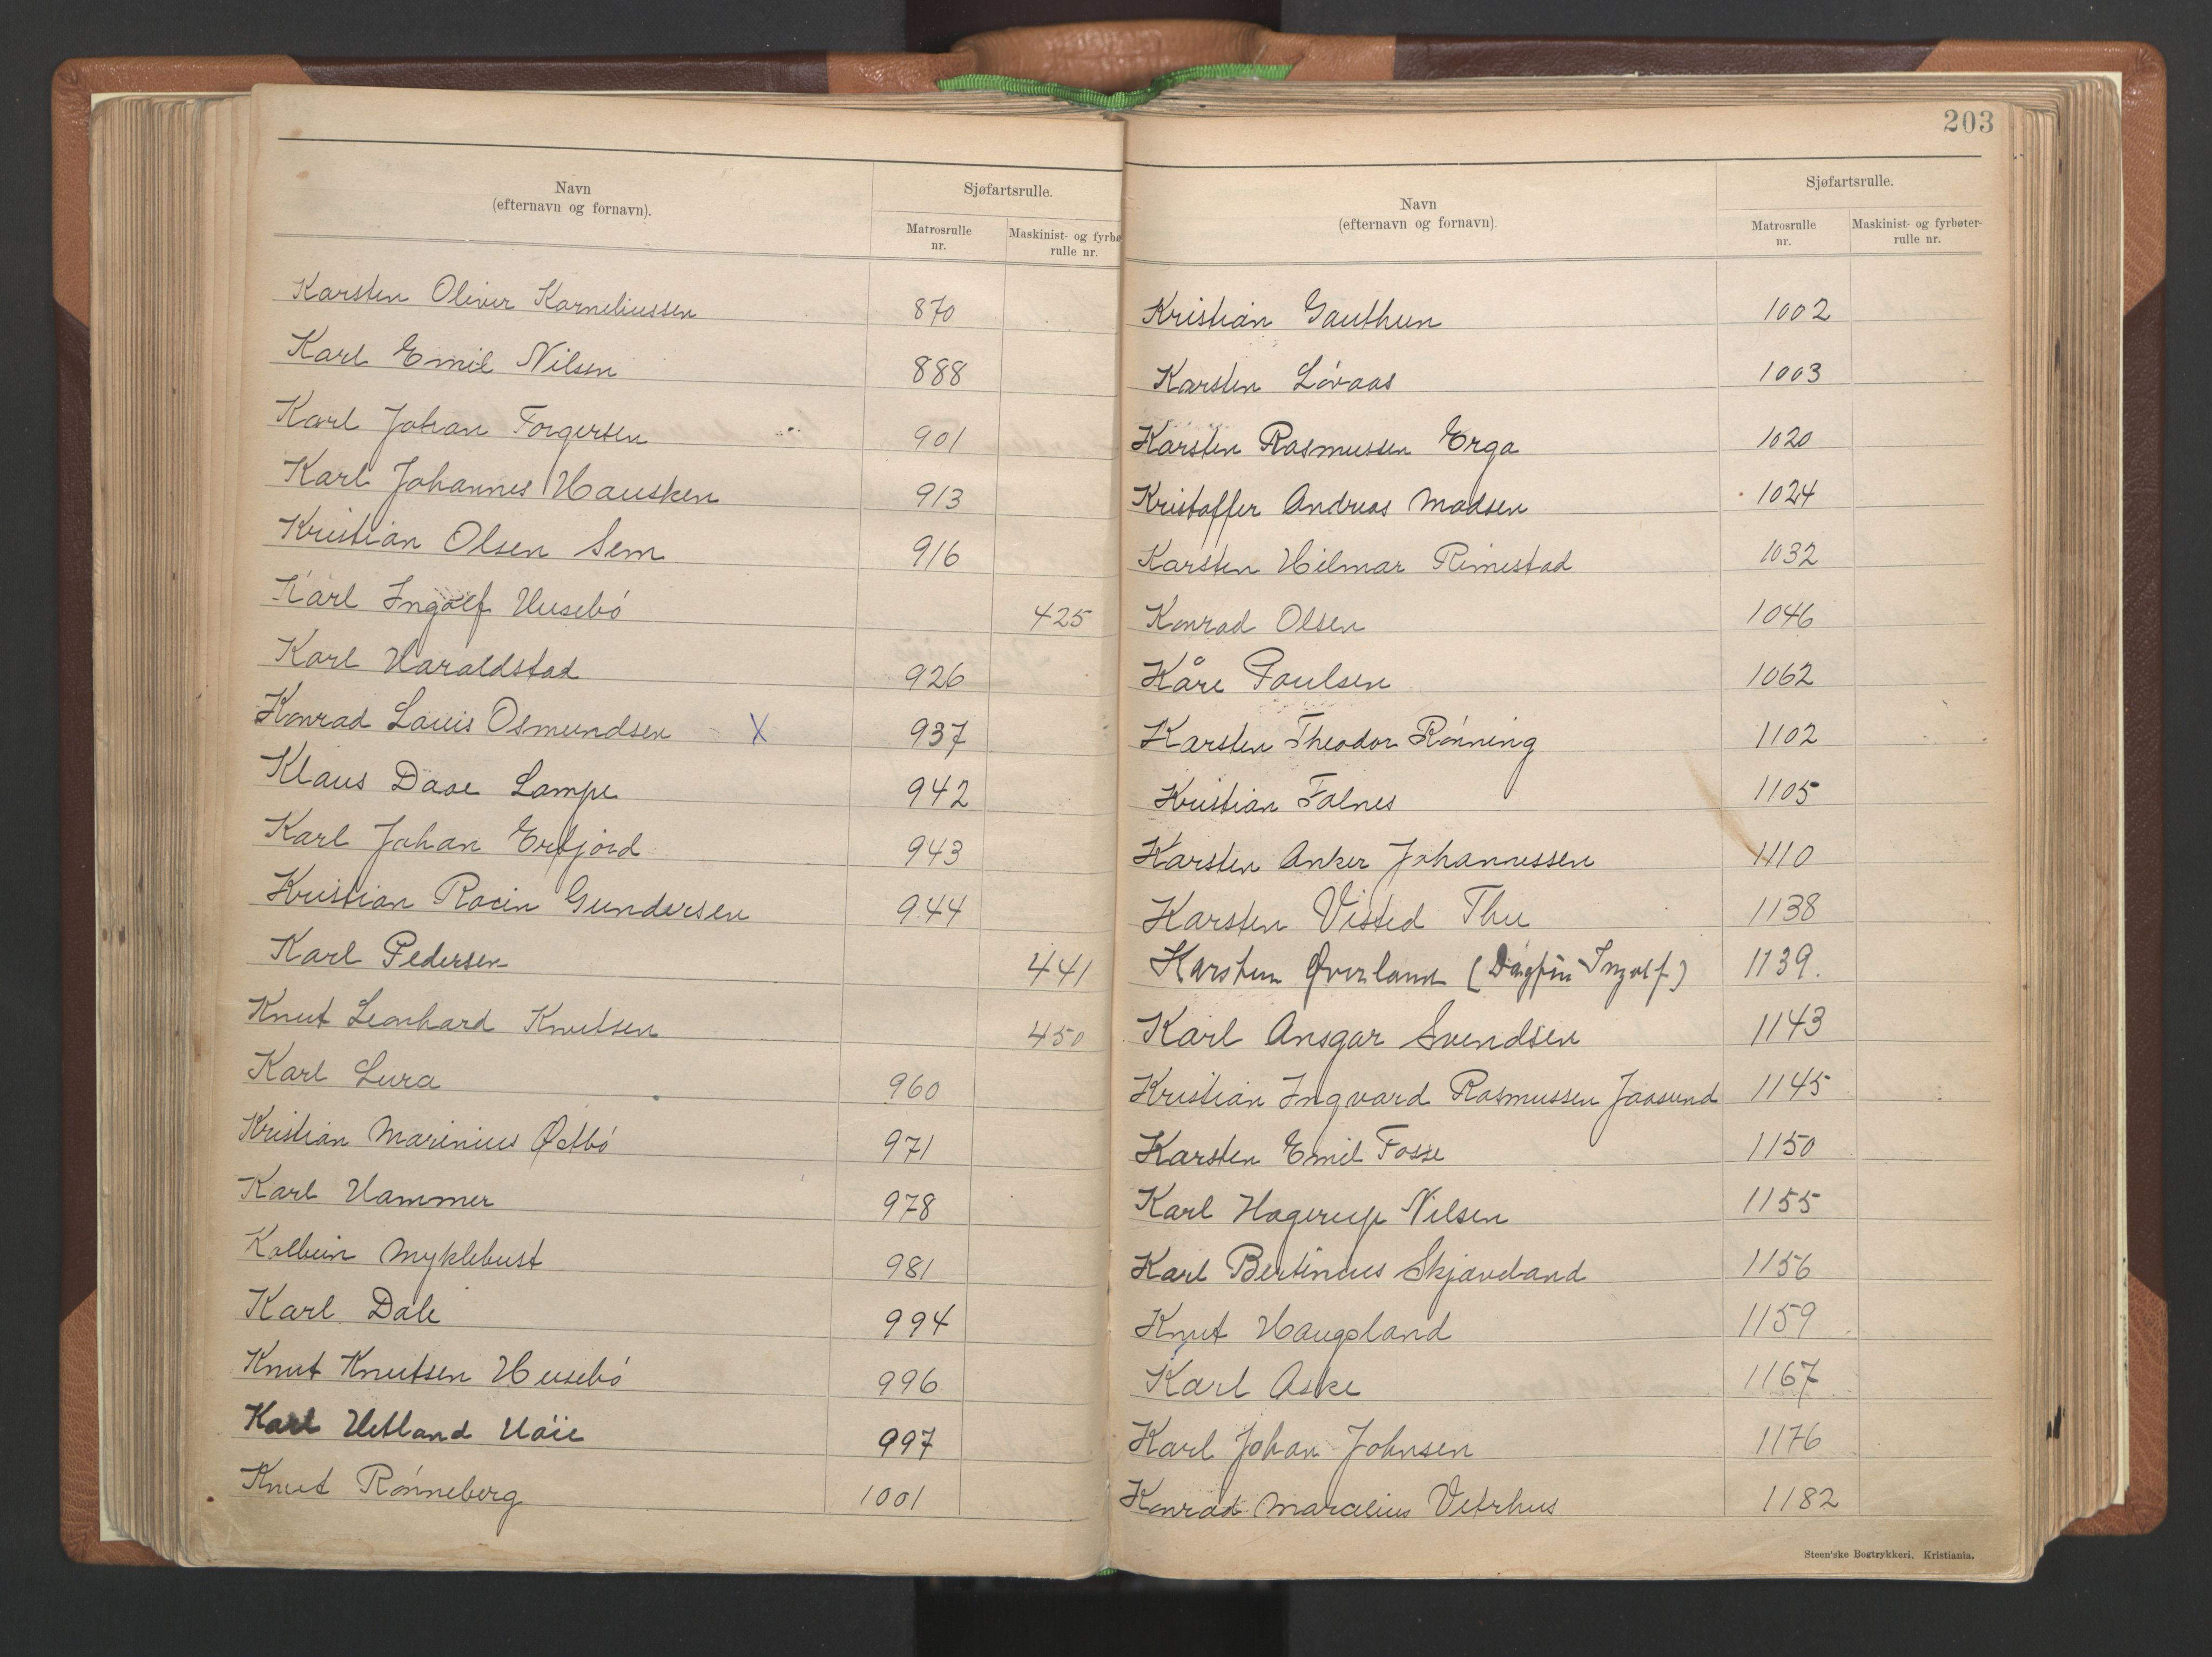 Navn
(efternavn og fornavn).
Sjøfartsrulle.
Matrosrulle
nr.
Maskinist- og fyrbø
rulle nr.
Karsten Oliver Korneliussen 870
Karl Emil Nilsen 888
Karl Johan Torgersen 901
Karl Johannes Hausken 913
Kristian Olsen Sem 916
Karl Ingolf Husebó 425
Karl Haraldstad 926
Konrad Louis Osmundsen X 937
Klaus Daae Lampe 942
Karl Johan Erfjord 943
Kristian Racin Gundersen 944
Karl Pedersen 441
Knut Leonhard Knutsen 450
Karl Lura 960
Kristian Marinius Østbó 971
Karl Hammer 978
Kolbein Myklebust 981
Karl Dale 994
Knut Knutsen Husebó 996
Karl Hetland Hóie 997
Knut Rónneberg 1001
203
Navn
(efternavn og fornavn).
Sjøfartsrulle.
Matrosrulle
nr.
Maskinist- og fyrbøter-
rulle nr.
Kristian Gauthun 1002
Karsten Lóvaas 1003
Karsten Rasmussen Erga 1020
Kristoffer Andreas Madsen 1024
Karsten Hilmar Rimestad 1032
Konrad Olsen 1046
Kåre Paulsen 1062
Karsten Theodor Rónning 1102
Kristian Falnes 1105
Karsten Anker Johannessen 1110
Karsten Visted Thu 1138
Karsten Øverland (Dagfin Ingolf) 1139.
Karl Ansgar Svendsen 1143
Kristian Ingvard Rasmussen Jaasund 1145
Karsten Emil Fosse 1150
Karl Hagerup Nilsen 1155
Karl Bertinius Skjæveland 1156
Knut Haugland 1159
Karl Aske 1167
Karl Johan Johnsen 1176
Konrad Marcelius Vetrhus 1182
Steen'ske Bogtrykkeri. Kristiania.